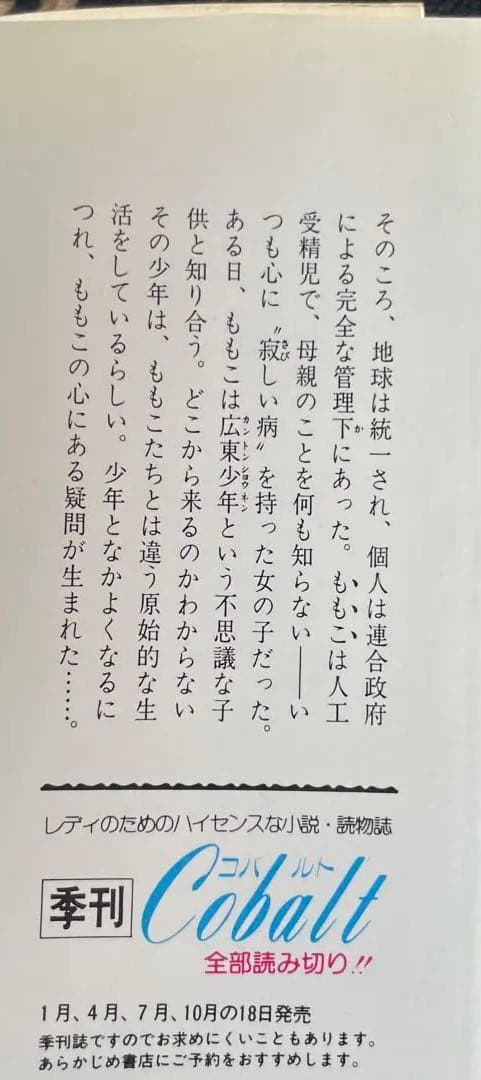 そのころ、地球は統一され、個人は連合政府
による完全な管理下にあった。ももこは人工
受精児で、母親のことを何も知らない――い
つも心に〝寂しい病〟を持った女の子だった。
ある日、ももこは広東少年という不思議な子
供と知り合う。どこから来るのかわからない
その少年は、ももこたちとは違う原始的な生
活をしているらしい。少年となかよくなるに
つれ、ももこの心にある疑問が生まれた……。
か
さび
カントンショウネン
レディのためのハイセンスな小説・読物誌
季刊
コバルト
Cobalt
全部読み切り!!
1月、4月、7月、10月の18日発売
季刊誌ですのでお求めにくいこともあります。
あらかじめ書店にご予約をおすすめします。